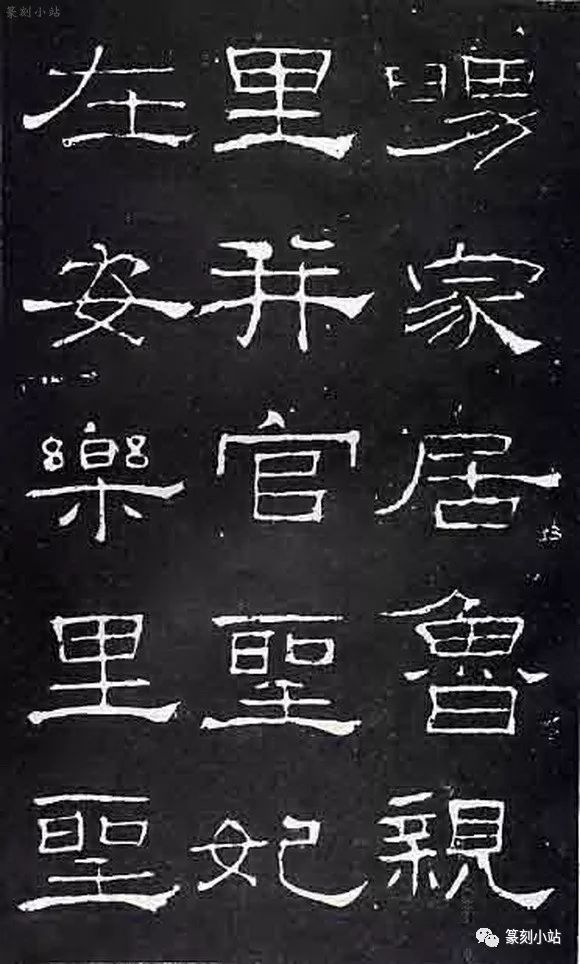 篆刻小站
舅家居魯親
里并官聖妃
在安樂里聖
篆刻小站